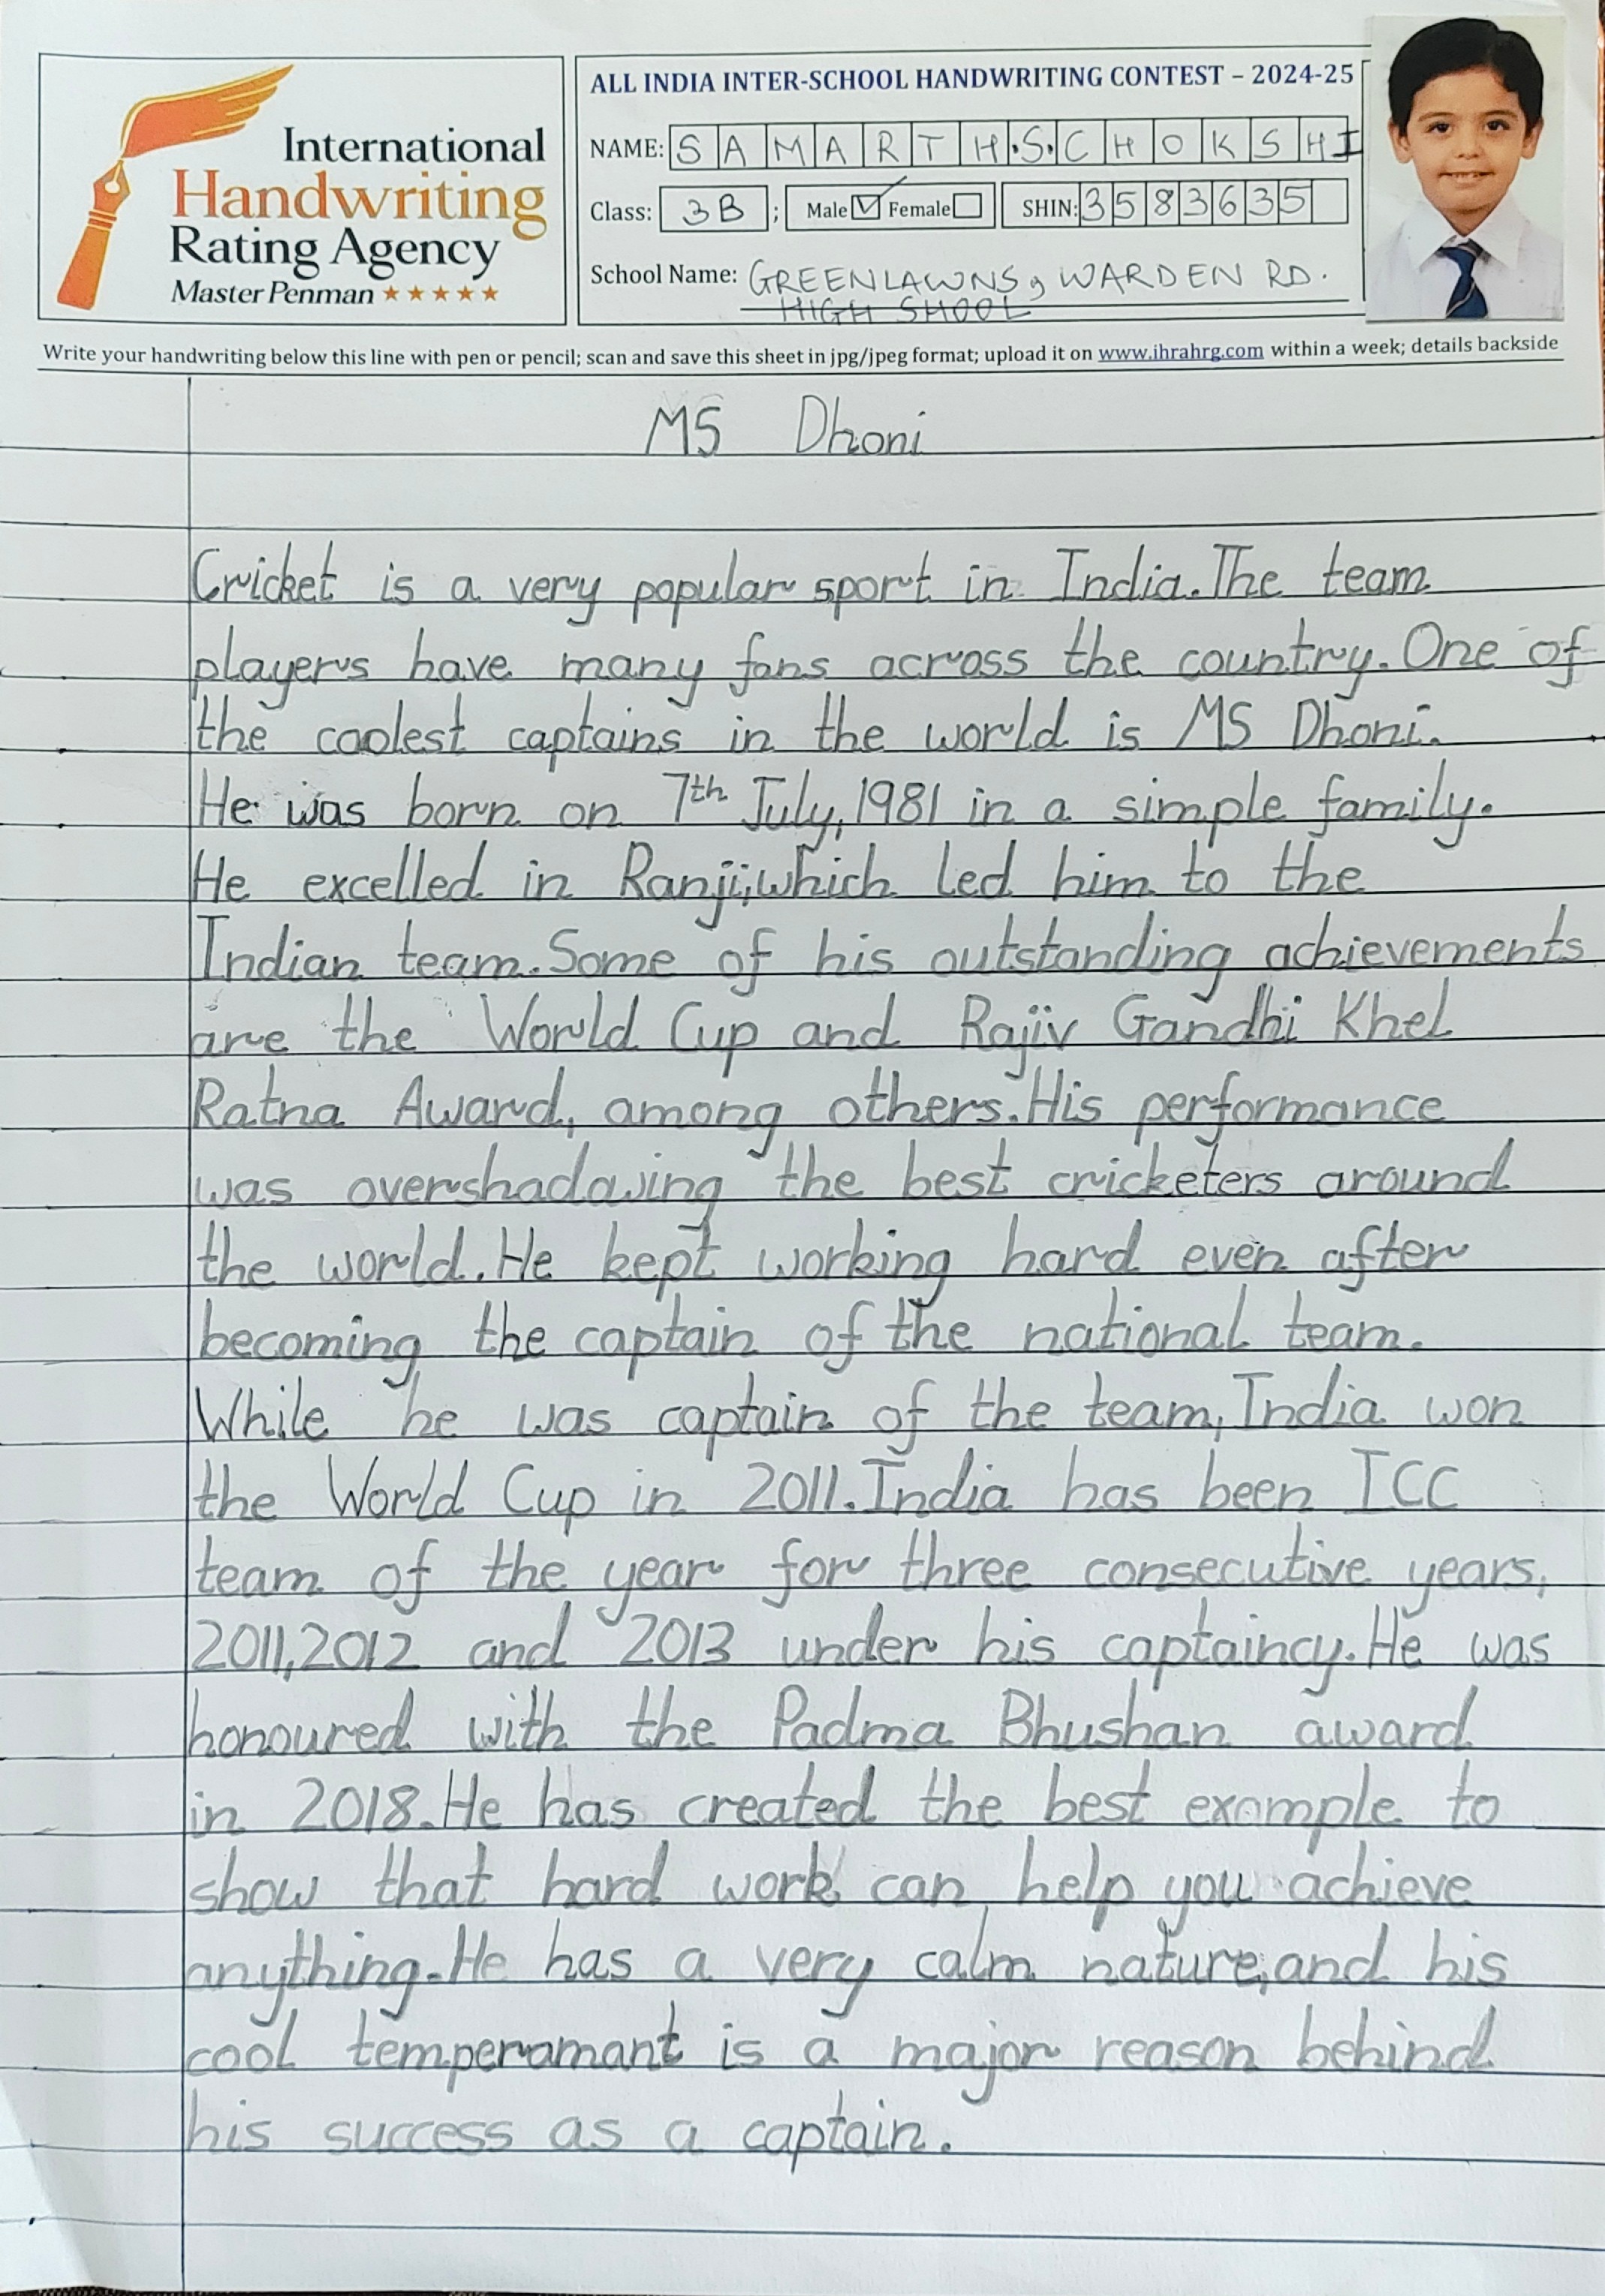 International
Handwriting
Rating Agency
Master Penman
ALL INDIA INTER-SCHOOL HANDWRITING CONTEST – 2024-25
NAME: SAMARTH.S.CHOKSHI
Class: 3B ; Male Female SHIN: 3583635
School Name: GREENLAWNS, WARDEN RD.
HIGH SHOOL
Write your handwriting below this line with pen or pencil; scan and save this sheet in jpg/jpeg format; upload it on www.ihrahrg.com within a week; details backside
MS Dhoni
Cricket is a very popular sport in India. The team
players have many fans across the country. One of
the coolest captains in the world is MS Dhoni.
He was born on 7th July, 1981 in a simple family.
He excelled in Ranji, which led him to the
Indian team. Some of his outstanding achievements
are the World Cup and Rajiv Gandhi Khel
Ratna Award, among others. His performance
was overshadowing the best cricketers around
the world. He kept working hard even after
becoming the captain of the national team.
While he was captain of the team, India won
the World Cup in 2011. India has been ICC
team of the year for three consecutive years,
2011, 2012 and 2013 under his captaincy. He was
honoured with the Padma Bhushan award
in 2018. He has created the best example to
show that hard work can help you achieve
anything. He has a very calm nature, and his
cool temperamant is a major reason behind
his success as a captain.